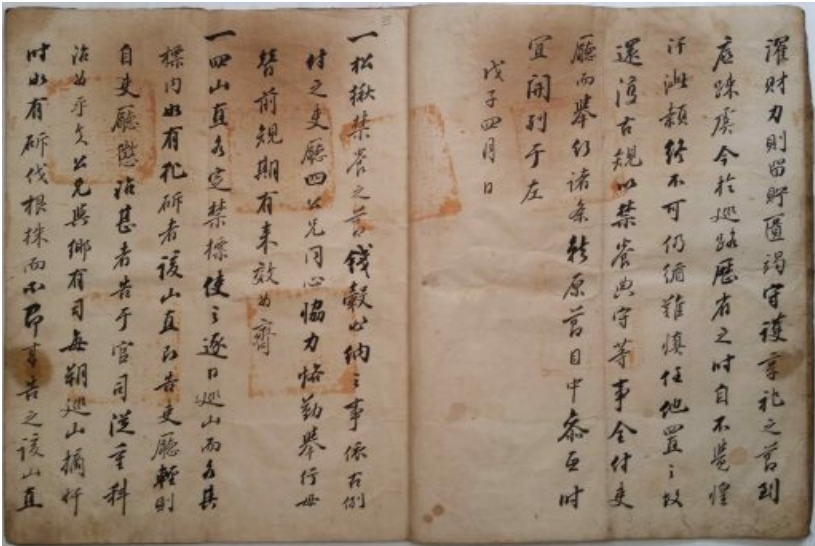 濯財力則留貯匱竭守護享祀之節到
底踈虞今於廵路歷省之時自不覺惶
汗泚顙終不可仍循難慎任他置之故
還復古規以禁養典守等事全付吏
廳而擧行諸条於原節目中叅互時
宜開列于左
戊子四月日
一松楸禁養之節錢穀出納之事依古例
付之吏廳四公兄同心協力恪勤擧行毋
替前規期有来效為齊
一四山直各定禁標使之逐日廵山而各其
標内如有犯斫者該山直即告吏廳輕則
自吏廳懲治甚者告于官司從重科
治為乎矣公兄與鄉有司每朔廵山摘奸
时如有斫伐根株而不即来告之該山直